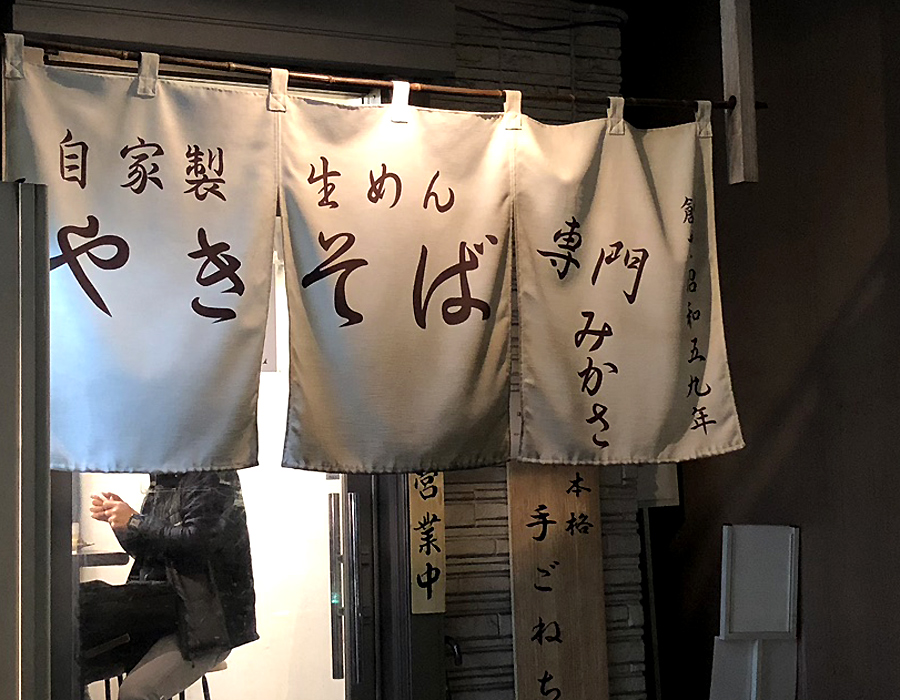 自家製 生めん
やきそば
専門
みかさ
創業昭和五九年
営業中
本格
手ごねち